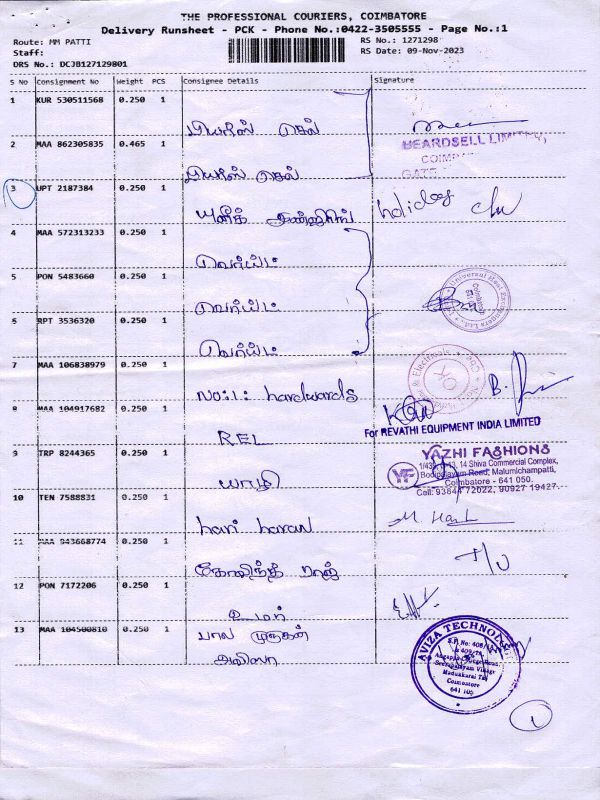 THE PROFESSIONAL COURIERS, COIMBATORE
Delivery Runsheet - PCK - Phone No.:0422-3505555 - Page No.:1
Route: MM PATTI RS No.: 1271298
Staff: RS Date: 09-Nov-2023
DRS No.: DCJB127129801
S No Consignment No Weight PCS Consignee Details Signature
1 KUR 530511568 0.250 1
2 MAA 862305835 0.465 1
BEARDSELL LIMITED,
GATE
3 UPT 2187384 0.250 1
யுனிக் holiday
4 MAA 572313233 0.250 1
5 PON 5483660 0.250 1
Universal Heat Exchangers Ltd. Coimbatore
RPT 3536320 0.250 1
7 MAA 106838979 0.250 1
No:1: hardwards
OK
8 MAA 104917682 0.250 1
REL
For REVATHI EQUIPMENT INDIA LIMITED
9 TRP 8244365 0.250 1
யாழி
YAZHI FASHIONS
14 Shiva Commercial Complex,
Malumichampatti,
YF Coimbatore - 641 050.
10 TEN 7588831 0.250 1
hari haran
11 MAA 943668774 0.250 1
கோவிந்த் ராஜ்
12 PON 7172206 0.250 1
உமர்
13 MAA 104500810 0.250 1
பால முருகன்
அவிஸா
AVIZA TECHNOLOGY
Madukkarai Tk
Coimbatore
1